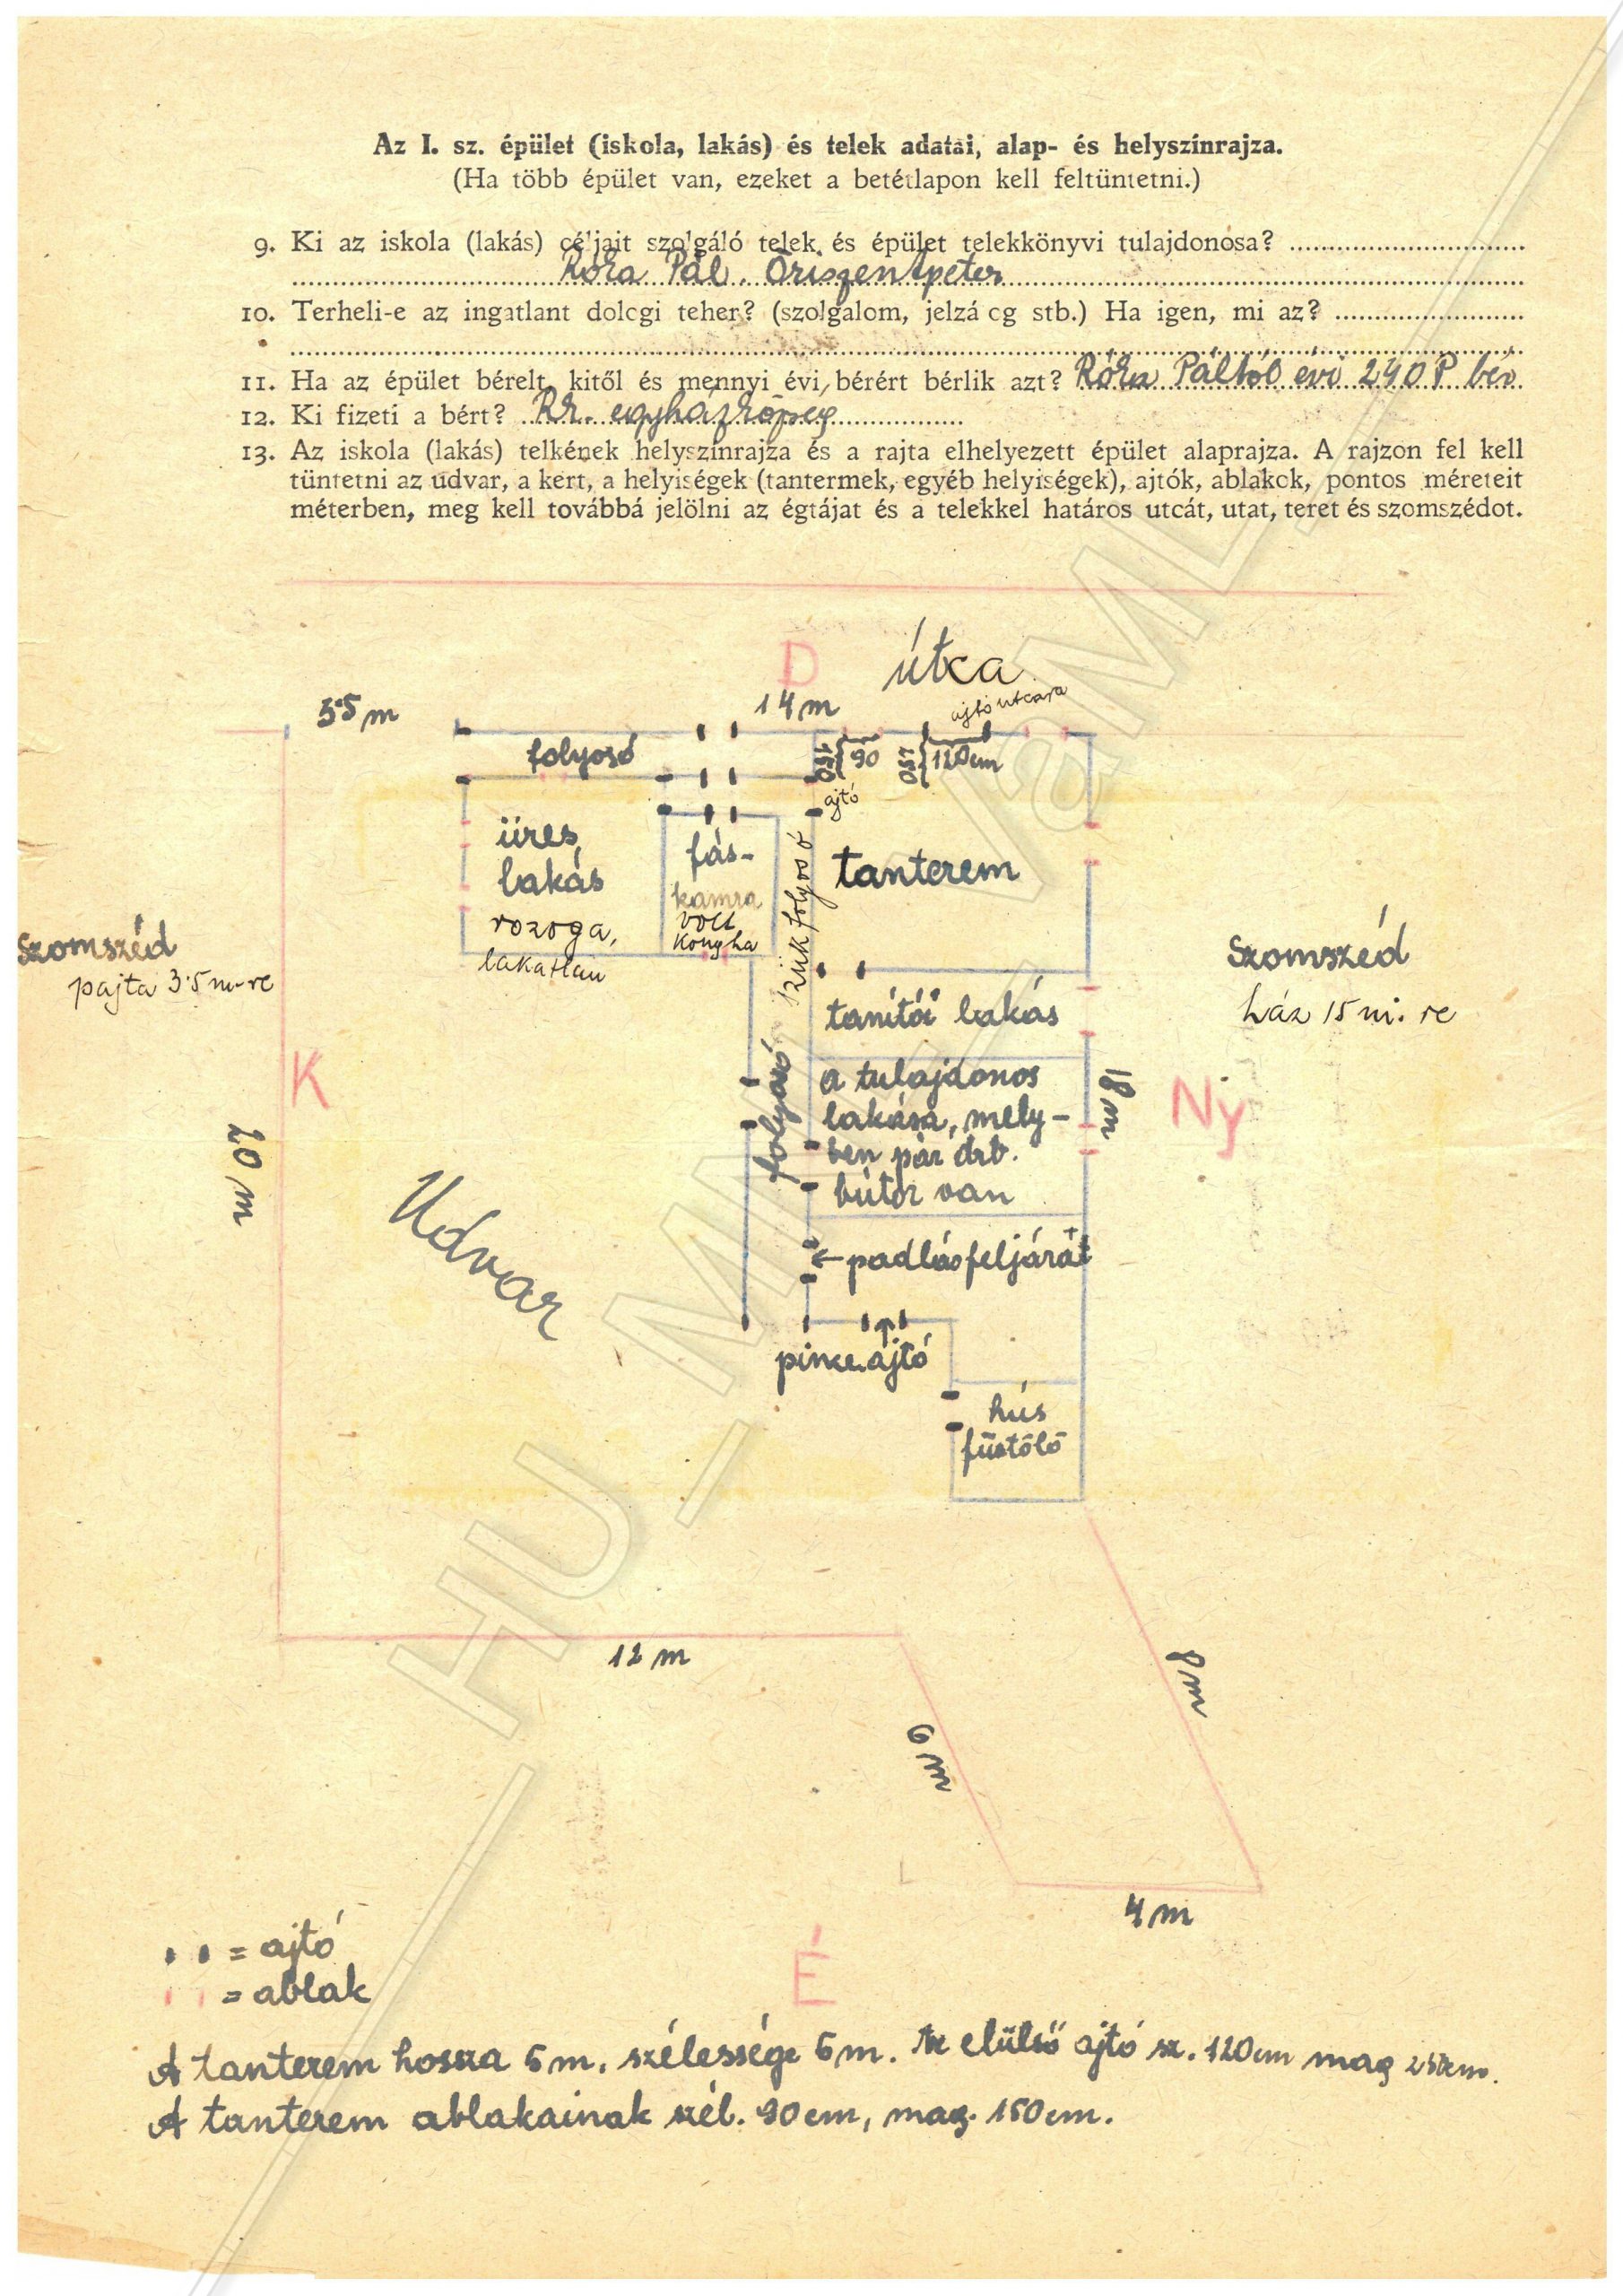 Az I. sz. épület (iskola, lakás) és telek adatai, alap- és helyszínrajza.
(Ha több épület van, ezeket a betétlapon kell feltüntetni.)
9. Ki az iskola (lakás) céljait szolgáló telek és épület telekkönyvi tulajdonosa?
Róka Pál. Őriszentpéter
10. Terheli-e az ingatlant dologi teher? (szolgalom, jelzá og stb.) Ha igen, mi az?
11. Ha az épület bérelt, kitől és mennyi évi bérért bérlik azt? Róka Páltól évi 240 P bér
12. Ki fizeti a bért? Rk. egyház
13. Az iskola (lakás) telkének helyszínrajza és a rajta elhelyezett épület alaprajza. A rajzon fel kell
tüntetni az udvar, a kert, a helyiségek (tantermek, egyéb helyiségek), ajtók, ablakok, pontos méreteit
méterben, meg kell továbbá jelölni az égtájat és a telekkel határos utcát, utat, teret és szomszédot.
D
útca
3·5 m
14 m
ajtó utcára
folyosó
150
90
250
120cm
ajtó
üres
lakás
rozoga,
lakatlan
fás-
kamra
volt
konyha
szük folyosó
tanterem
Szomszéd
pajta 3·5 m-re
Szomszéd
ház 15 m. re
tanítói lakás
K
20 m
Udvar
folyosó
a tulajdonos
lakása, mely-
ben pár drb.
bútor van
18 m
Ny
←padlásfeljárát
pince ajtó
hús
füstölő
12 m
8 m
6 m
4 m
É
= ajtó
= ablak
A tanterem hossza 6 m. szélessége 6 m. Az elülső ajtó sz. 120cm mag 250cm.
A tanterem ablakainak szél. 90cm, mag. 150cm.
HU_MNL_VaML_